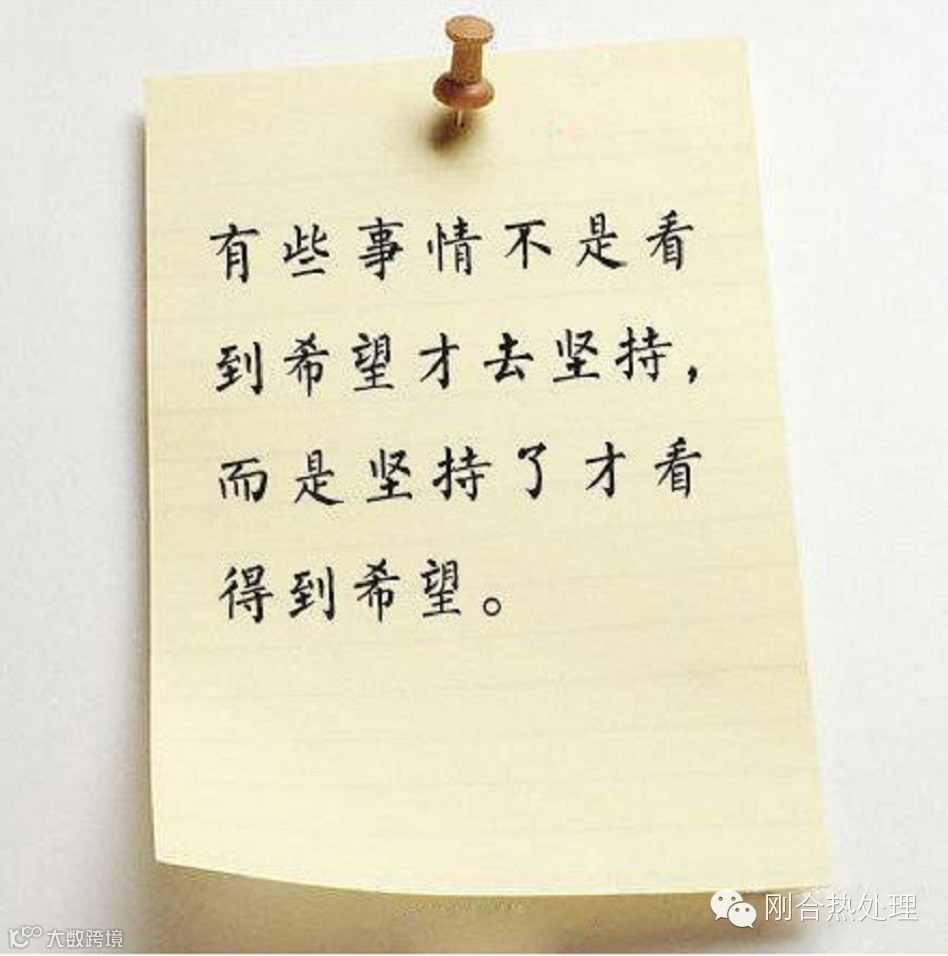 有些事情不是看
到希望才去坚持，
而是坚持了才看
得到希望。
刚合热处理
大数跨境